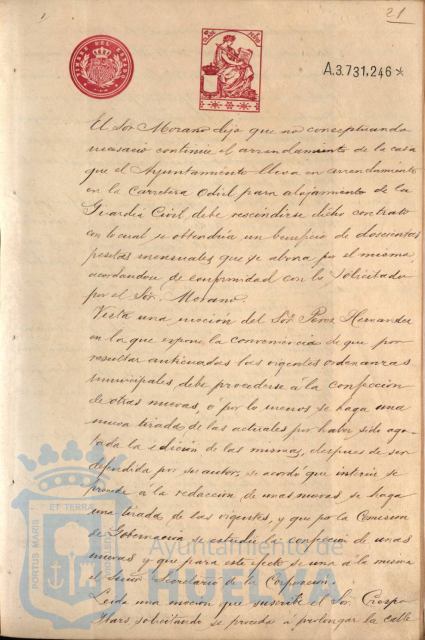 21
TIMBRE DEL ESTADO
A.3.731,246*
El Sor. Morano dijo que no conceptuando
necesario continue el arrendamiento de la casa
que el Ayuntamiento lleva en arrendamiento
en la Carretera Odiel para alojamiento de la
Guardia Civil, debe rescindirse dicho contrato
con lo cual se obtendria un beneficio de doscientas
pesetas mensuales que se abona por el mismo,
acordandose de conformidad con lo solicitado
por el Sor. Morano.
Vista una moción del Sor. Perez Hernandez
en la que expone la conveniencia de que por
resultar anticuadas las vigentes ordenanzas
municipales, debe procederse á la confeccion
de otras nuevas, ó por lo menos se haga una
nueva tirada de las actuales por haber sido ago-
tada la edición de las mismas, despues de ser
defendida por su autor, se acordó que interin se
procede á la redacción de unas nuevas, se haga
una tirada de las vigentes, y que por la Comision
de Gobernacion se estudie la confeccion de unas
nuevas y que para este efecto se una á la misma
el Señor Secretario de la Corporacion.
Leida una mocion que suscribe el Sor. Crespo
solicitando se proceda á prolongar la calle
PORTUS MARIS ET TERRAE
Ayuntamiento de
HUELVA